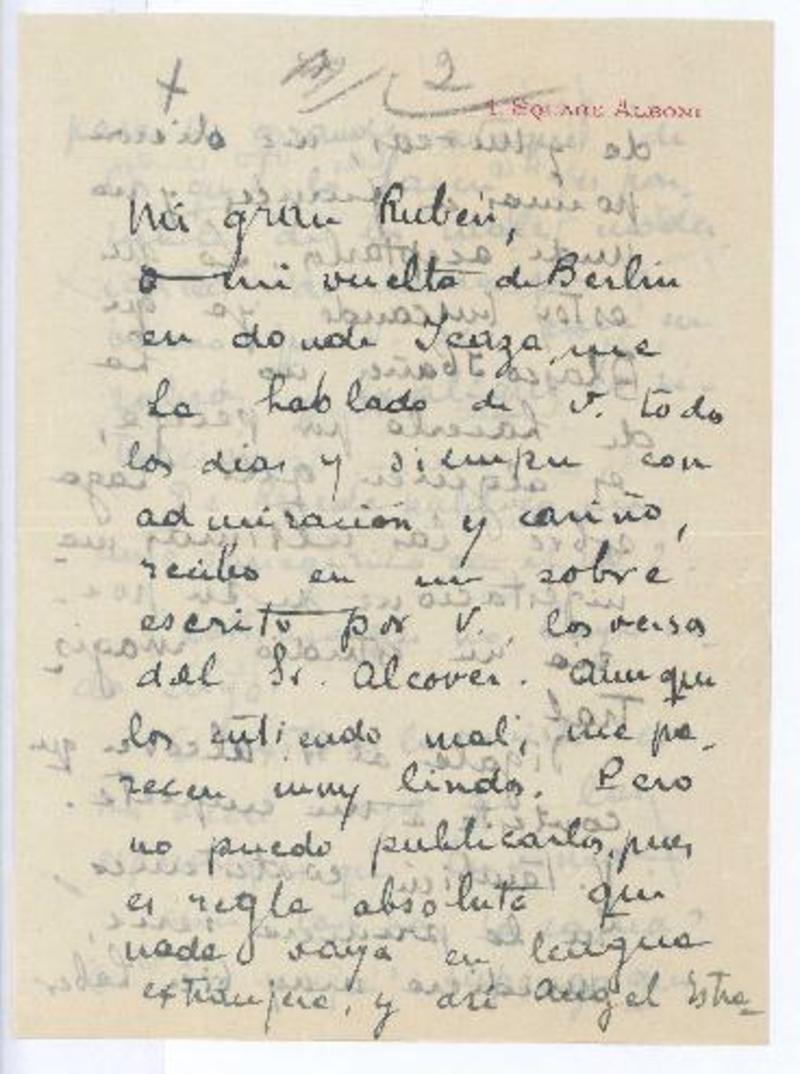 2
1. SQUARE ALBONI
Mi gran Rubén,
a mi vuelta de Berlin
en donde Icaza, me
ha hablado de V. todos
los dias y siempre con
admiración y cariño,
recibo en un sobre
escrito por V., los versos
del Sr. Alcover. Aunque
los entiendo mal, me pa-
recen muy lindos. Pero
no puedo publicarlos, pues
es regla absoluta que
nada vaya en lengua
extranjera, y asi Angel Estra-